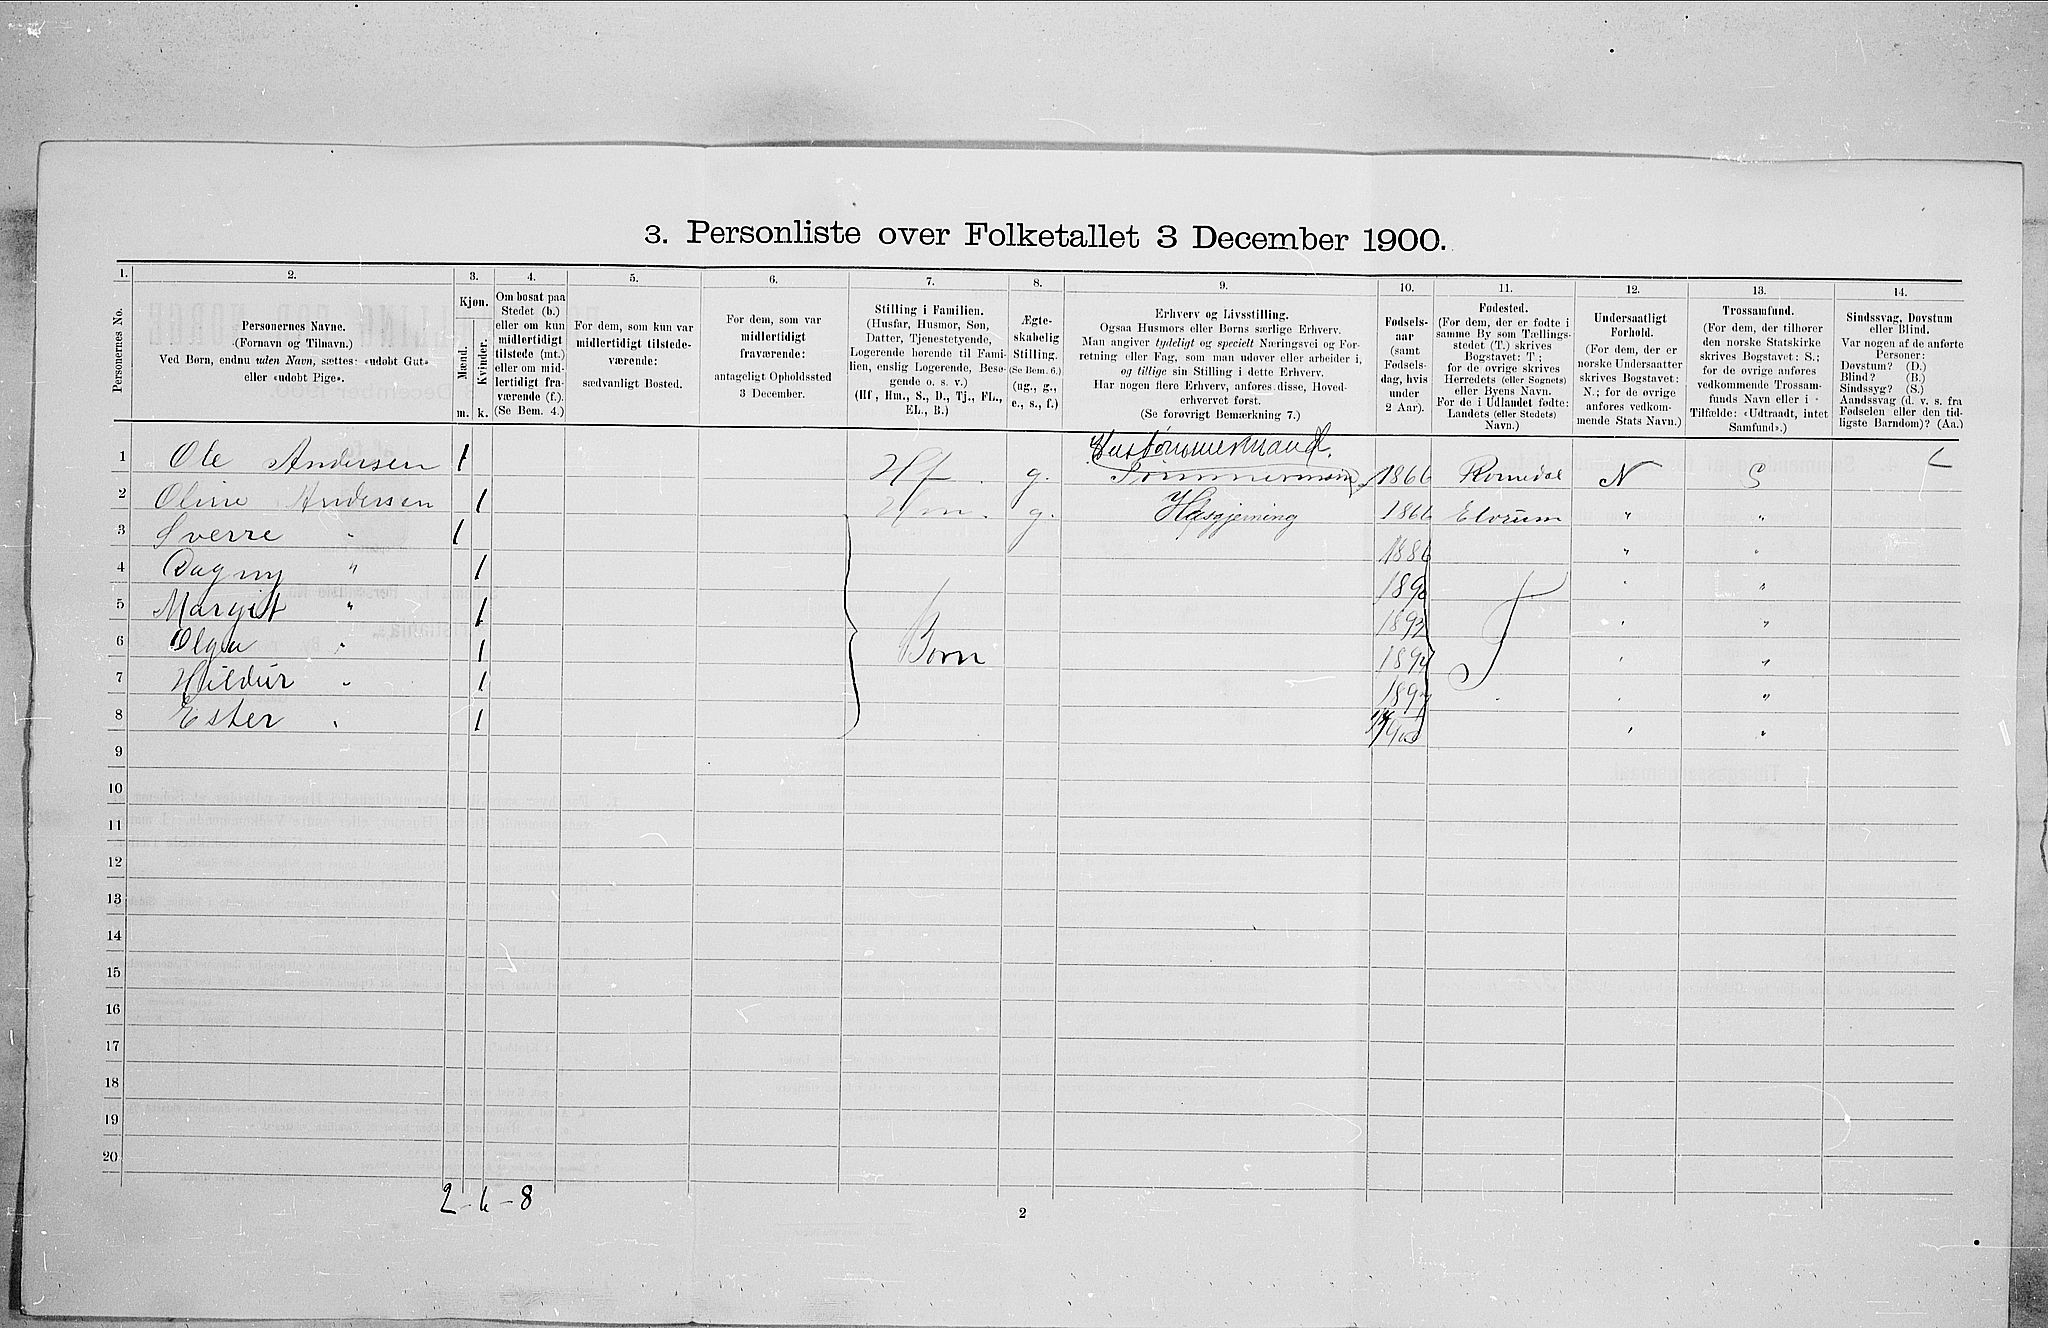 3. Personliste over Folketallet 3 December 1900.
1. 2. 3. 4. 5. 6. 7. 8. 9. 10. 11. 12. 13. 14.
Personernes No.
Personernes Navne.
(Fornavn og Tilnavn.)
Ved Børn, endnu uden Navn, sættes: «udøbt Gut»
eller «udøbt Pige».
Kjøn.
Mænd.
Kvinder.
m. k.
Om bosat paa
Stedet (b.)
eller om kun
midlertidigt
tilstede (mt.)
eller om mid-
lertidigt fra-
værende (f.).
(Se Bem. 4.)
For dem, som kun var
midlertidigt tilstede-
værende:
sædvanligt Bosted.
For dem, som var
midlertidigt
fraværende:
antageligt Opholdssted
3 December.
Stilling i Familien.
(Husfar, Husmor, Søn,
Datter, Tjenestetyende,
Logerende hørende til Fami-
lien, enslig Logerende, Besø-
gende o. s. v.)
(Hf., Hm., S., D., Tj., FL.,
EL., B.)
Ægte-
skabelig
Stilling.
(Se Bem. 6.)
(ug., g.,
e., s., f.)
Erhverv og Livsstilling.
Ogsaa Husmors eller Børns særlige Erhverv.
Man angiver tydeligt og specielt Næringsvei og For-
retning eller Fag, som man udøver eller arbeider i,
og tillige sin Stilling i dette Erhverv.
Har nogen flere Erhverv, anføres disse, Hoved-
erhvervet først.
(Se forøvrigt Bemærkning 7.)
Fødsels-
aar
(samt
Fødsels-
dag, hvis
under
2 Aar).
Fødested.
(For dem, der er fødte i
samme By som Tællings-
stedet (T.) skrives
Bogstavet: T.;
for de øvrige skrives
Herredets (eller Sognets)
eller Byens Navn.
For de i Udlandet fødte:
Landets (eller Stedets)
Navn.)
Undersaatligt
Forhold.
(For dem, der er
norske Undersaatter
skrives Bogstavet:
N.; for de øvrige
anføres vedkom-
mende Stats Navn.)
Trossamfund.
(For dem, der tilhører
den norske Statskirke
skrives Bogstavet: S.;
for de øvrige anføres
vedkommende Trossam-
funds Navn eller i
Tilfælde: «Udtraadt, intet
Samfund».)
Sindssvag, Døvstum
eller Blind.
Var nogen af de anførte
Personer:
Døvstum? (D.)
Blind? (B.)
Sindssyg? (S.)
Aandssvag (d. v. s. fra
Fødselen eller den tid-
ligste Barndom)? (Aa.)
Hustømmermand.
1 Ole Andersen 1 Hf. g. Tømmermand 1866 Romedal N S
2 Oline Andersen 1 Hm. g. Husgjerning 1866 Elvrum " "
3 Sverre " 1 1886 " "
4 Dagny " 1 1890 " "
5 Margit " 1 " "
6 Olga " 1 Børn T " "
7 Hildur " 1 " "
8 Ester " 1 " "
9
10
11
12
13
14
15
16
17
18
19
20
2-6-8
2